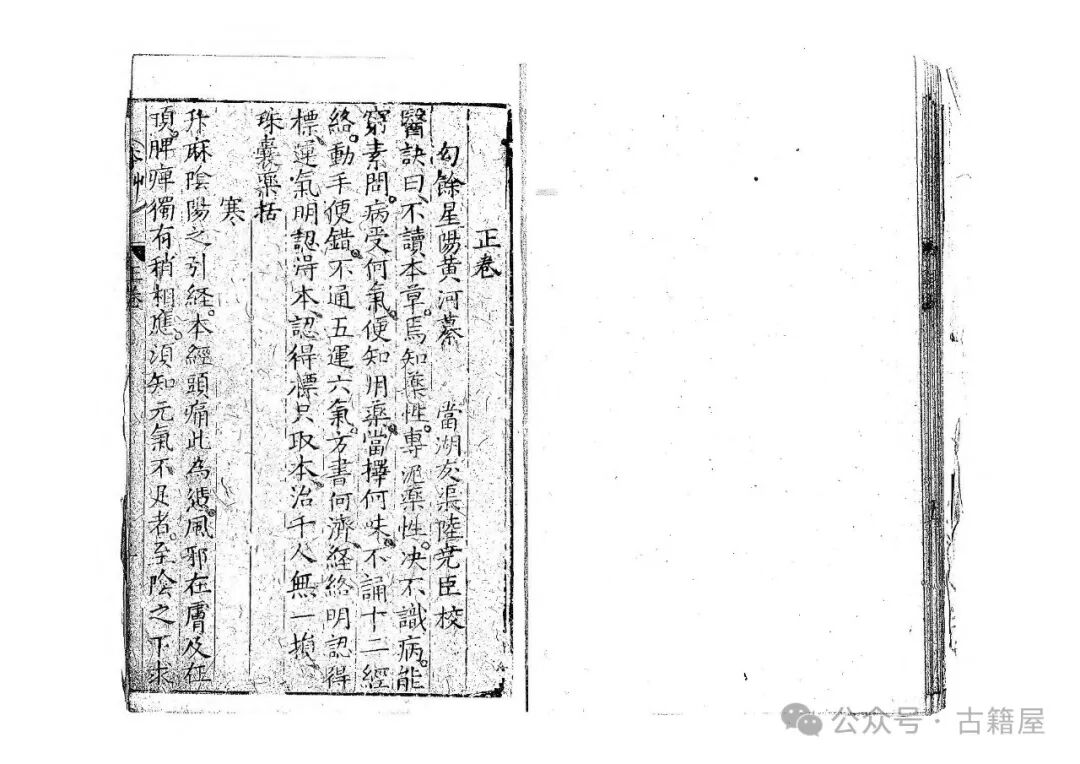 正卷
勾餘星陽黄河蓁 當湖友渠陸堯臣校
醫訣曰不讀本草焉知藥性專泥藥性决不識病能
窮素問病受何氣便知用藥當擇何味不誦十二經
絡動手便錯不通五運六氣方書何濟経絡明認得
標運氣明認淂本認得標只取本治千人無一損
珠囊藥括
寒
升麻陰陽之引経本經頭痛此為
風邪在膚及在
頂脾痺獨有稍相應須知元氣不足者至陰之下求
公众号·古籍屋